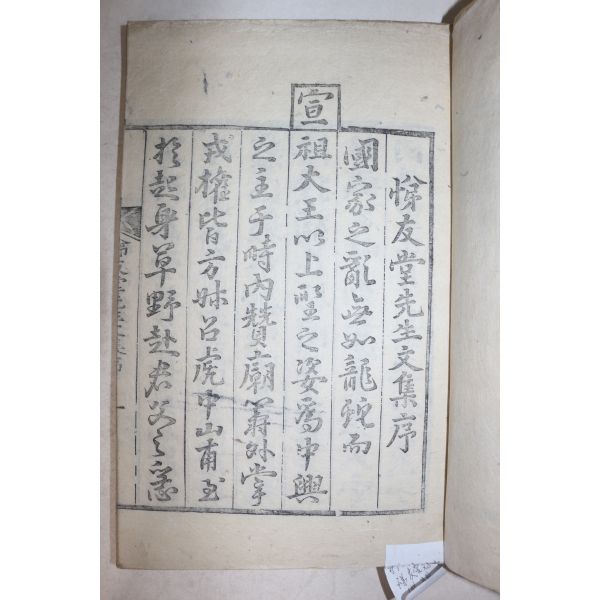 悌友堂先生文集序
國家之亂無如龍蛇而
宣祖大王以上聖之姿爲中興
之主于時內贊廟籌外掌
戎權皆方叔召虎申山甫至
於起身草野赴君父之急